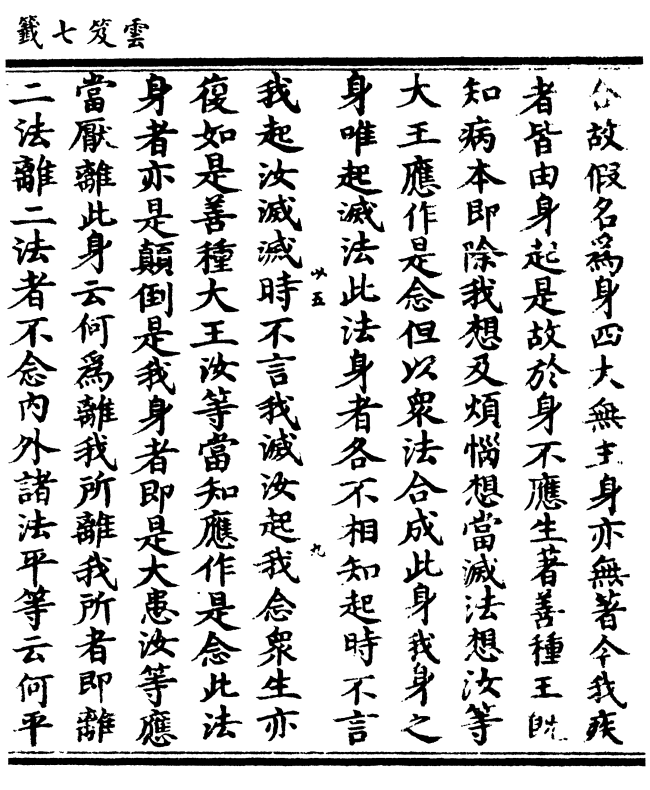 雲笈七籤
合故假名爲身四大無主身亦無著今我疾
者皆由身起是故於身不應生著善種王旣
知病本即除我想及煩惱想當滅法想汝等
大王應作是念但以衆法合成此身我身之
身唯起滅法此法身者各不相知起時不言
以五
九
我起汝滅滅時不言我滅汝起我念衆生亦
復如是善種大王汝等當知應作是念此法
身者亦是顛倒是我身者即是大患汝等應
當厭離此身云何爲離我所離我所者即離
二法離二法者不念內外諸法平等云何平